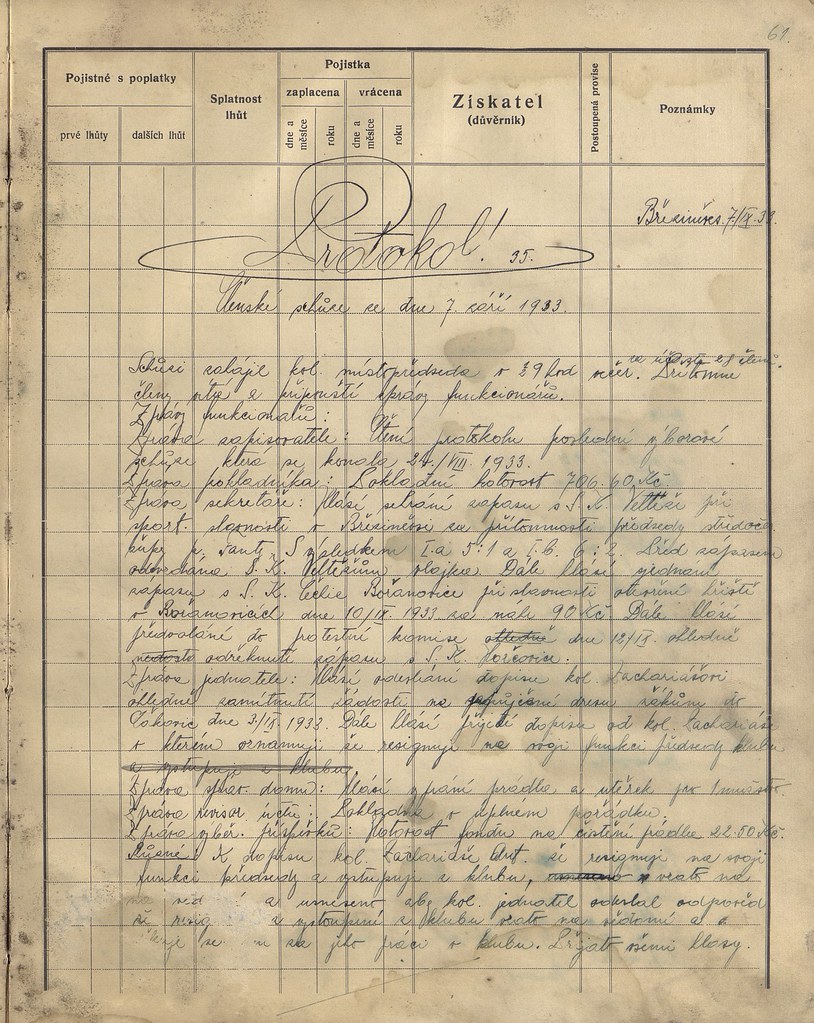 61.
Pojistné s poplatky
Splatnost lhůt
Pojistka
Získatel
(důvěrník)
Postoupená provise
Poznámky
prvé lhůty
dalších lhůt
zaplacena
vrácena
dne a měsíce
roku
dne a měsíce
roku
Březiněves. 7/IX. 33.
Protokol! 35.
Členské schůze ze dne 7. září 1933.
za účasti členů.
Schůzi zahájil kol. místopředseda v ½9 hod večer. Přítomné
členy vítá a připouští zprávy funkcionářů.
Zprávy funkcionářů:
Zpráva zapisovatele: Čtení protokolu poslední výborové
schůze která se konala /VIII. 1933.
Zpráva pokladníka: Pokladní hotovost 706.60 Kč.
Zpráva sekretáře: Hlásí sehrání zápasu s S. K. při
sport. slavnosti v Březiněvsi za přítomnosti předsedy středoče.
župy p. S výsledkem I.a 5:1 a I.b. 6:2. Před zápasem
odevzdána S. K. vlajka. Dále hlásí sjednání
zápasu s S. K. Čechie Bořanovice při slavnosti otevření hřiště
v Bořanovicích dne 10/IX. 1933 za náhr. 90 Kč. Dále hlásí
předvolání do protestní komise ohledně dne 12/IX. ohledně
odřeknutí zápasu s S. K.
Zpráva jednatele: Hlásí odeslání dopisu kol. Zachariášovi
ohledně zamítnutí žádosti na půjčení dresu žákům do
Čakovic dne 3/IX 1933. Dále hlásí přijetí dopisu od kol. Zachariáše
v kterém oznamuje že resignuje na svoji funkci předsedy klubu
a vystupuje z klubu
Zpráva správ. dresů: Hlásí vyprání prádla a utěrek pro I mužstvo.
Zpráva revisor. účtů: Pokladna v úplném pořádku.
Zpráva výběr. příspěvků: Hotovost fondu na čistění prádla 22.50 Kč.
Různé: K dopisu kol. Zachariáše Ant. že resignuje na svoji
funkci předsedy a vystupuje z klubu, vzato na
a usneseno aby kol. jednatel odeslal odpověď
že resig a vystoupení z klubu vzato na vědomí a
se za jeho práci v klubu. Přijato všemi hlasy.